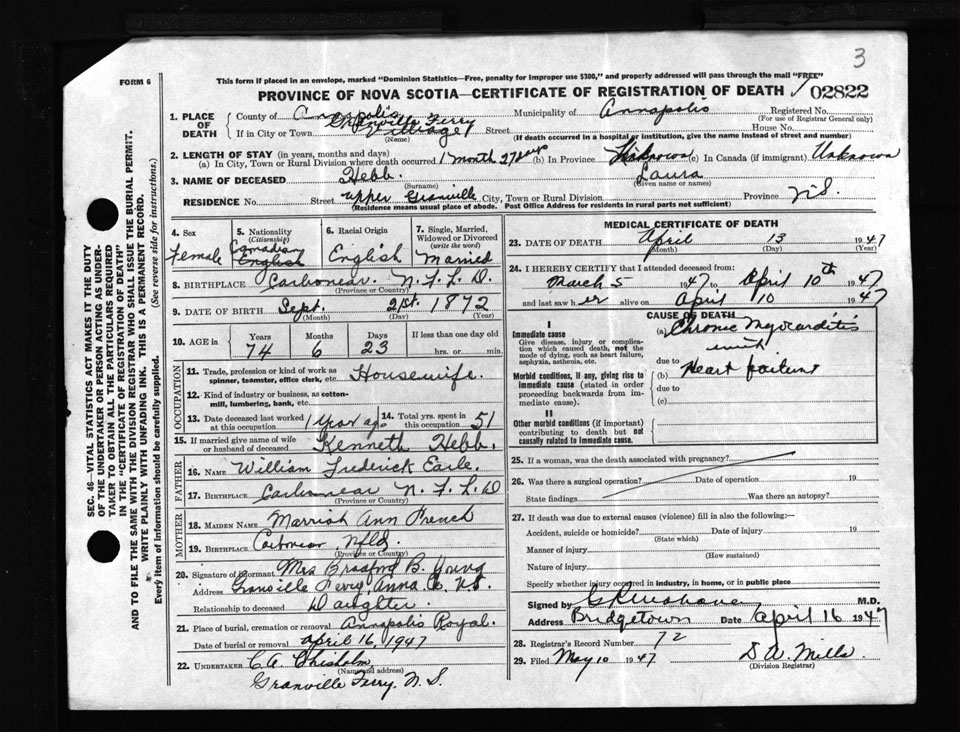 3
FORM 6
This form if placed in an envelope, marked "Dominion Statistics—Free, penalty for improper use $300," and properly addressed will pass through the mail "FREE"
PROVINCE OF NOVA SCOTIA—CERTIFICATE OF REGISTRATION OF DEATH 02822
SEC. 46—VITAL STATISTICS ACT MAKES IT THE DUTY
OF THE UNDERTAKER OR PERSON ACTING AS UNDER-
TAKER TO OBTAIN ALL THE PARTICULARS REQUIRED
IN THE "CERTIFICATE OF REGISTRATION OF DEATH"
AND TO FILE THE SAME WITH THE DIVISION REGISTRAR WHO SHALL ISSUE THE BURIAL PERMIT.
WRITE PLAINLY WITH UNFADING INK. THIS IS A PERMANENT RECORD.
Every item of Information should be carefully supplied. (See reverse side for instructions.)
1. PLACE OF DEATH
County of Annapolis Municipality of Annapolis Registered No.
(For use of Registrar General only)
If in City or Town Granville Ferry Village Street House No.
(Name) (If death occurred in a hospital or institution, give the name instead of street and number)
2. LENGTH OF STAY (in years, months and days)
(a) In City, Town or Rural Division where death occurred 1 month 27 days (b) In Province Unknown (c) In Canada (if immigrant) Unknown
3. NAME OF DECEASED Hebb. Laura
(Surname) (Given name or names)
RESIDENCE No. Street Upper Granville City, Town or Rural Division Province N.S.
(Residence means usual place of abode. Post Office Address for residents in rural parts not sufficient)
4. Sex Female
5. Nationality (Citizenship) Canadian English
6. Racial Origin English
7. Single, Married, Widowed or Divorced (write the word) Married
8. BIRTHPLACE Carbonear N.F.L.D.
(Province or Country)
9. DATE OF BIRTH Sept. 21st. 1872
(Month) (Day) (Year)
10. AGE in Years Months Days If less than one day old
74 6 23 hrs. or min.
OCCUPATION
11. Trade, profession or kind of work as spinner, teamster, office clerk, etc. Housewife.
12. Kind of industry or business, as cotton-mill, lumbering, bank, etc.
13. Date deceased last worked at this occupation 1 year ago
14. Total yrs. spent in this occupation 51
15. If married give name of wife or husband of deceased Kenneth Hebb.
FATHER
16. Name William Frederick Earle.
17. Birthplace Carbonear N.F.L.D
(Province or Country)
MOTHER
18. Maiden Name Marriah Ann French
19. Birthplace Carbonear Nfld.
(Province or Country)
20. Signature of informant Mrs Bradford B. Young
Address Granville Ferry, Anna Co. N.S.
Relationship to deceased Daughter.
21. Place of burial, cremation or removal Annapolis Royal.
Date of burial or removal April 16, 1947
22. UNDERTAKER C.A. Chisholm
(Name and address)
Granville Ferry. N.S.
MEDICAL CERTIFICATE OF DEATH
23. DATE OF DEATH April 13 1947
(Month) (Day) (Year)
24. I HEREBY CERTIFY that I attended deceased from:
March 5 1947 to April 10th 1947
and last saw her alive on April 10 1947
CAUSE OF DEATH
I
Immediate cause
Give disease, injury or complication which caused death, not the mode of dying, such as heart failure, asphyxia, asthenia, etc.
(a) Chronic Myocarditis with
due to
Morbid conditions, if any, giving rise to immediate cause (stated in order proceeding backwards from immediate cause).
(b) Heart failure
due to
(c)
II
Other morbid conditions (if important) contributing to death but not causally related to immediate cause.
25. If a woman, was the death associated with pregnancy?
26. Was there a surgical operation? Date of operation 19
State findings Was there an autopsy?
27. If death was due to external causes (violence) fill in also the following:—
Accident, suicide or homicide? Date of injury 19
(State which)
Manner of injury
(How sustained)
Nature of injury
Specify whether injury occurred in industry, in home, or in public place
Signed by M.D.
Address Bridgetown Date April 16 1947
28. Registrar's Record Number 72
29. Filed May 10 1947 D.A. Mills
(Division Registrar)